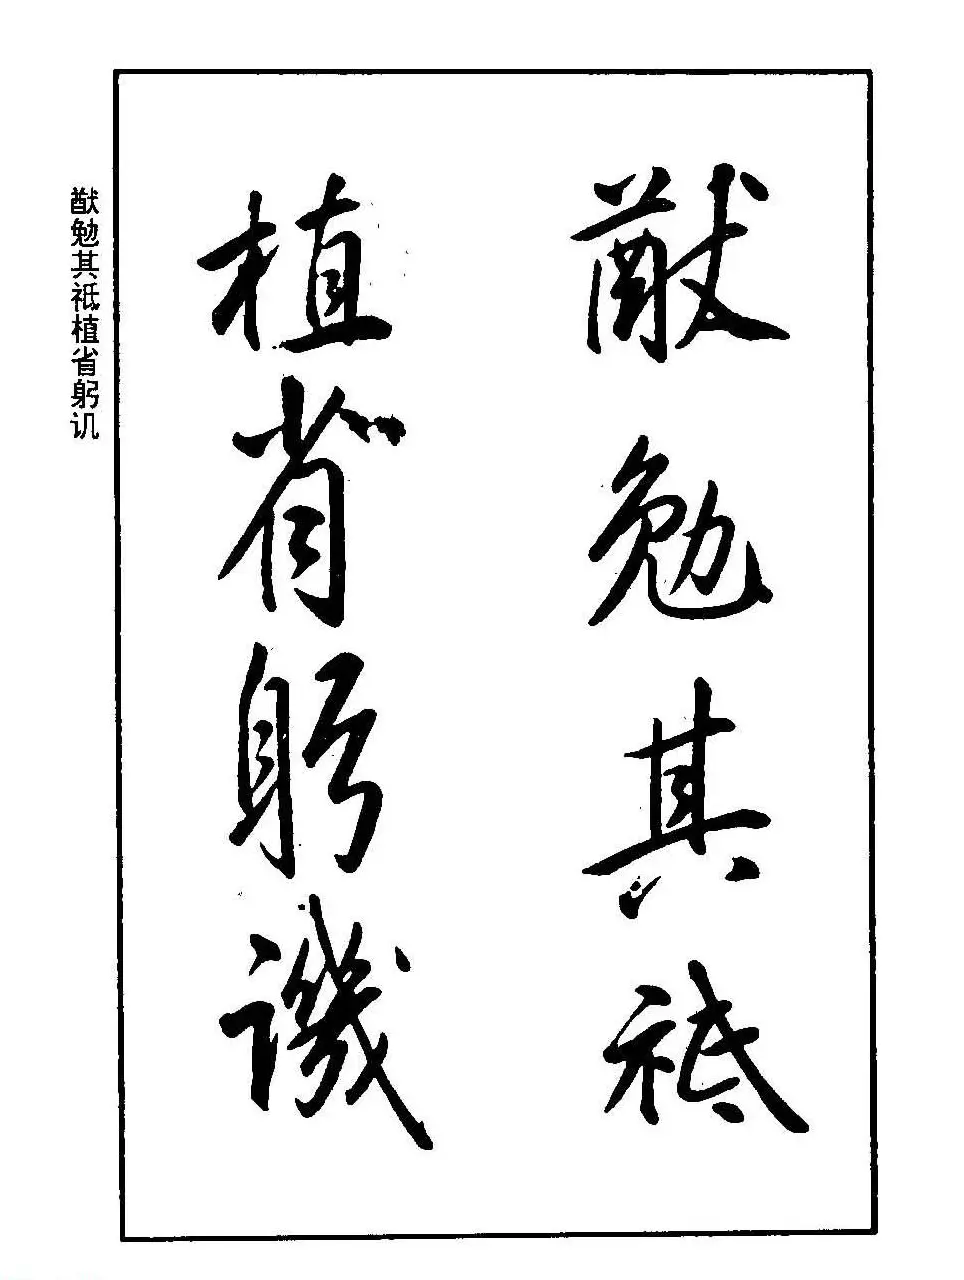 猷勉其祗
植省躬譏
猷勉其祗植省躬讥